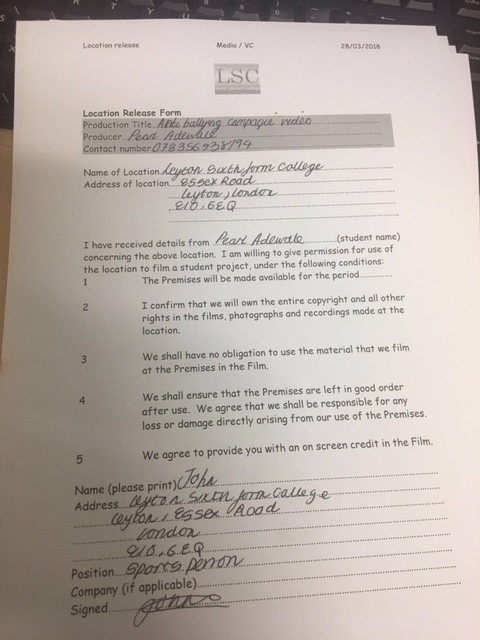 Location release Media / VC 28/03/2018
LSC
Location Release Form
Production Title Anti bullying campaign video
Producer Pearl Adewale
Contact number
Name of Location Leyton Sixth form College
Address of location Essex Road
Leyton, London
E10, 6EQ
I have received details from Pearl Adewale (student name)
concerning the above location. I am willing to give permission for use of
the location to film a student project, under the following conditions:
1 The Premises will be made available for the period
2 I confirm that we will own the entire copyright and all other
rights in the films, photographs and recordings made at the
location.
3 We shall have no obligation to use the material that we film
at the Premises in the Film.
4 We shall ensure that the Premises are left in good order
after use. We agree that we shall be responsible for any
loss or damage directly arising from our use of the Premises.
5 We agree to provide you with an on screen credit in the Film.
Name (please print) John
Address Leyton Sixth form College
Leyton, Essex Road
London
E10, 6EQ
Position Sports person
Company (if applicable)
Signed John